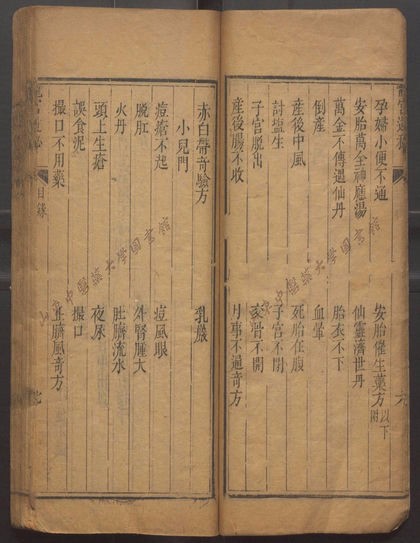 孕婦小便不通 安胎催生藥方以下附
安胎萬全神應湯 仙靈濟世丹
萬金不傳遇仙丹 胎衣不下
倒產 血暈
產後中風 死胎在腹
討鹽生 子宮不閉
子宮脫出 交骨不開
產後腸不收 月事不通奇方
赤白帶奇驗方 乳巖
小兒門
痘瘡不起 痘風眼
脫肛 外腎腫大
火丹 肚臍流水
頭上生瘡 夜尿
誤食泥 撮口
撮口不用藥 止臍風奇方
目錄